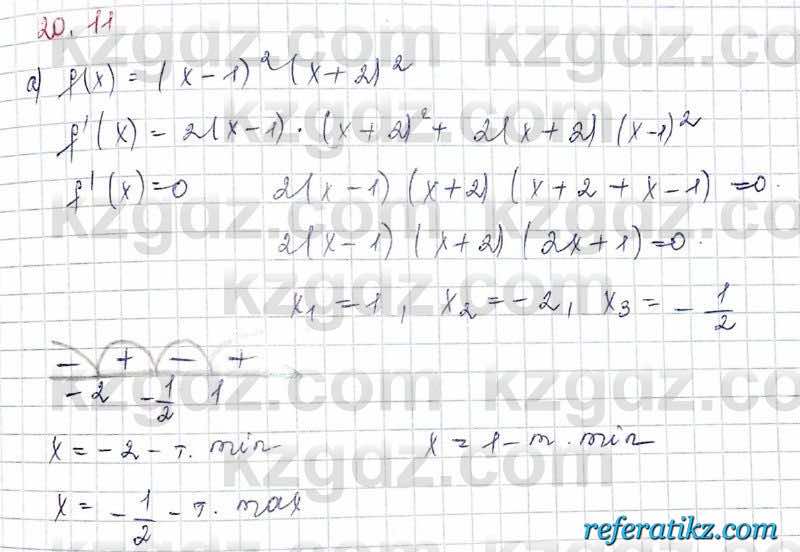 20.11
а) f(x) = (x-1)²(x+2)²
f'(x) = 2(x-1)·(x+2)²+ 2(x+2)(x-1)²
f'(x)=0 2(x-1)(x+2)(x+2+x-1)=0.
2(x-1)(x+2)(2x+1)=0.
x₁=1, x₂=-2, x₃=-1/2
- + - +
-2 -1/2 1
x=-2-т. min x=1-т. min
x=-1/2-т. max
kzgdz.com
referatikz.com